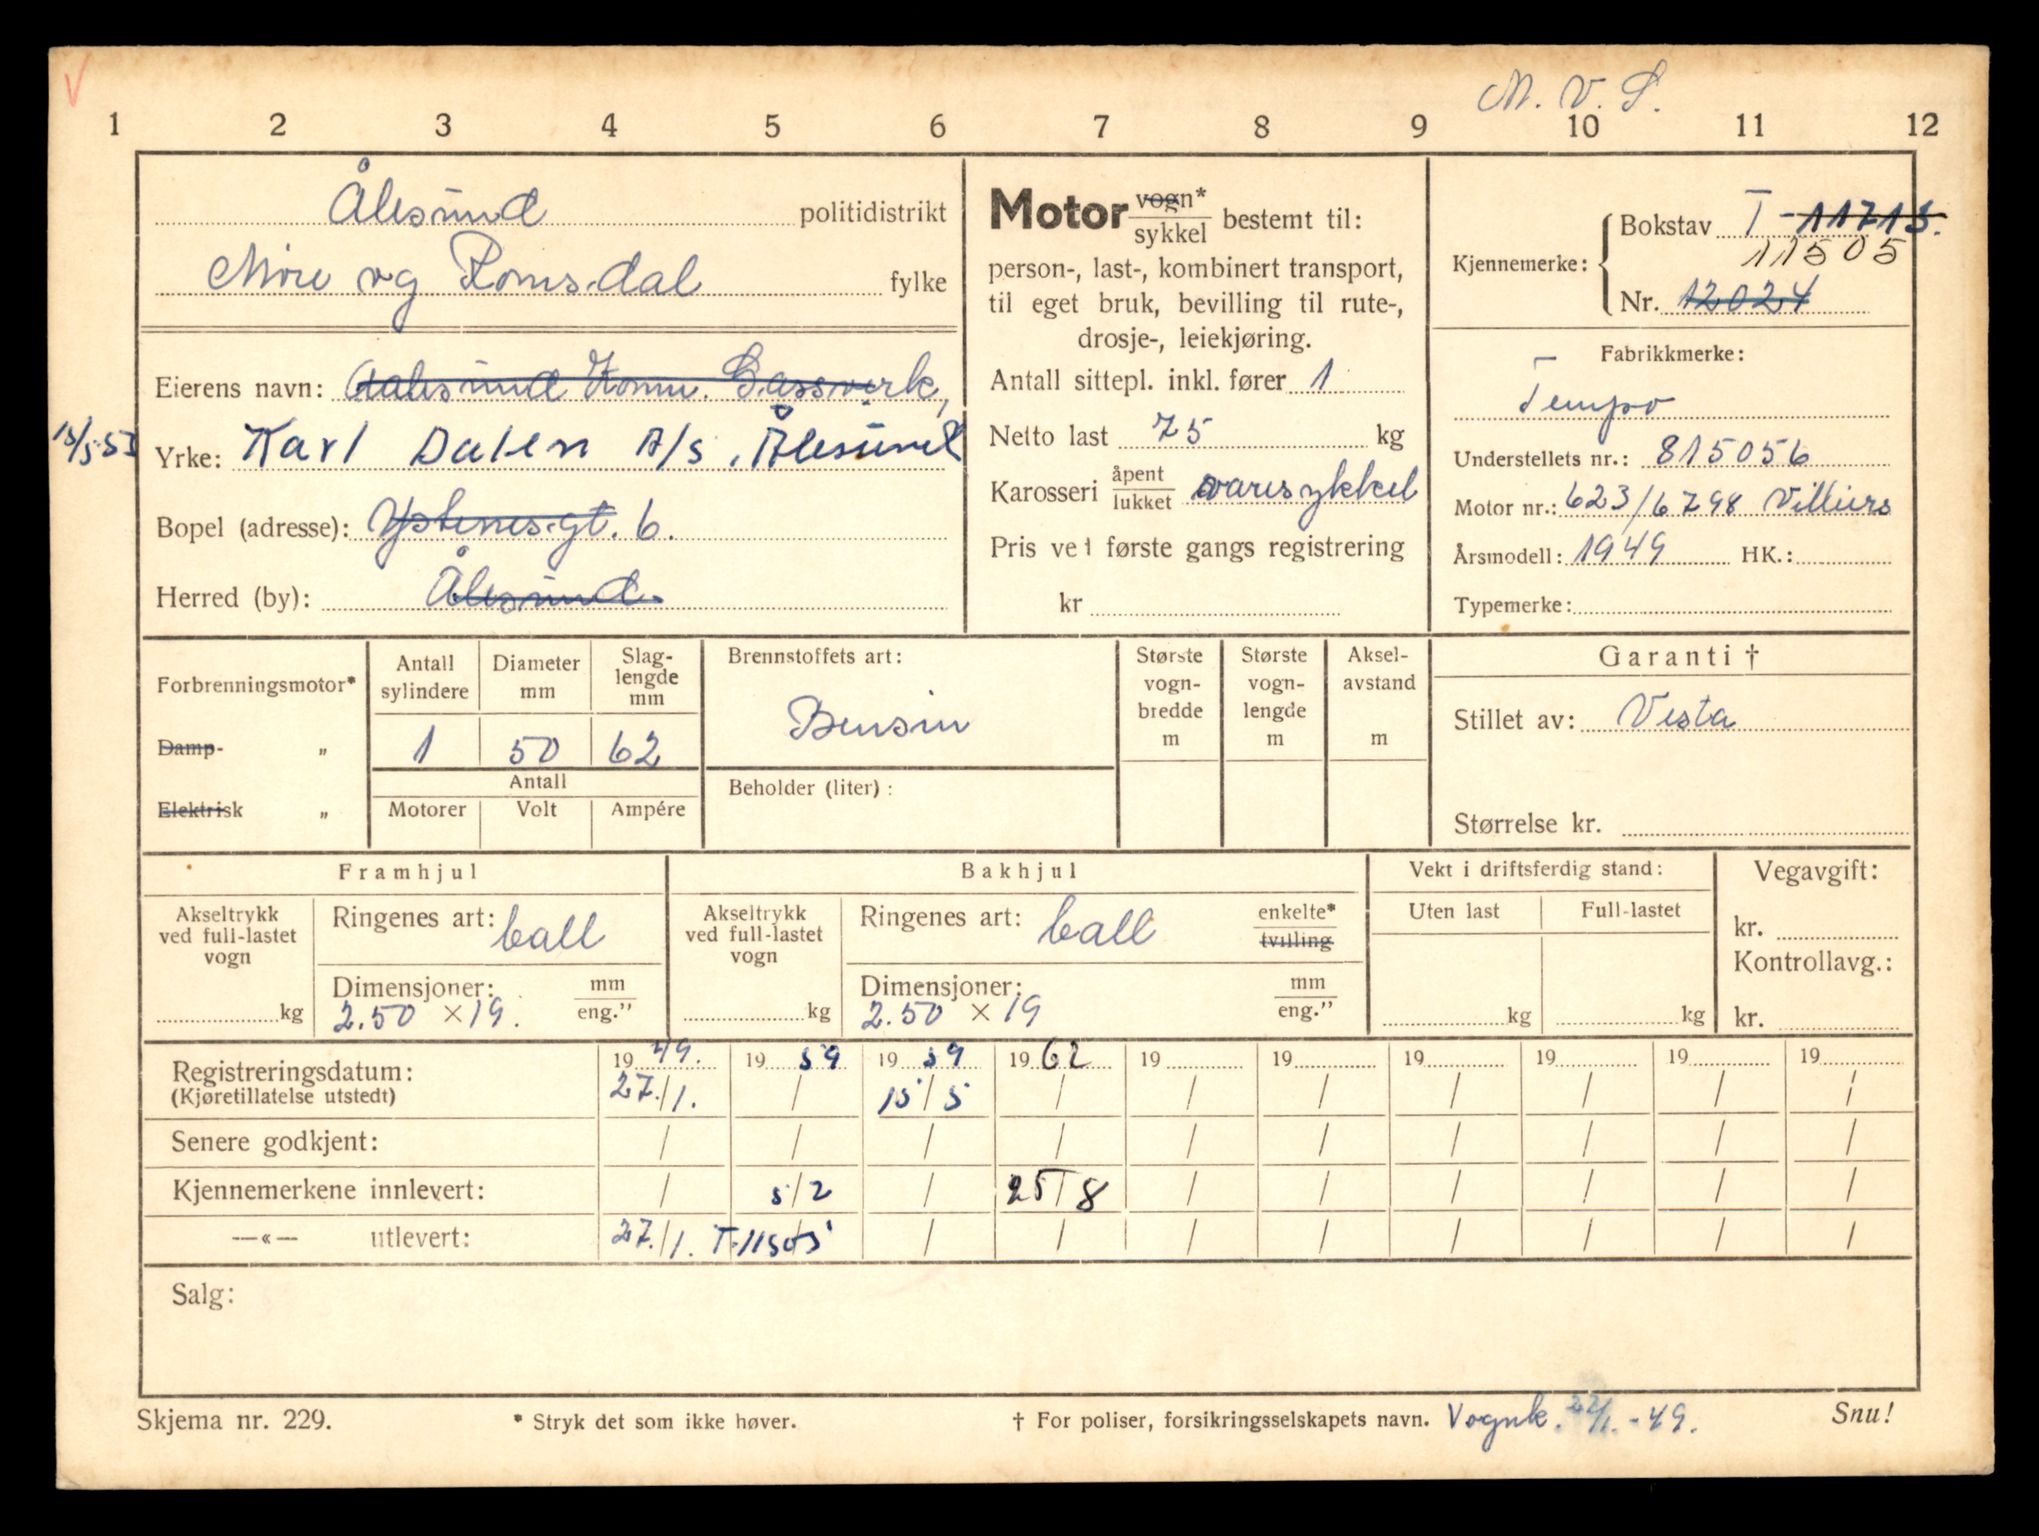 M. V. S.
1 2 3 4 5 6 7 8 9 10 11 12
Ålesund politidistrikt
Møre og Romsdal fylke
Eierens navn: Aalesund Komm. Gassverk,
15/5-53 Yrke: Karl Dalen A/S, Ålesund
Bopel (adresse): Ystenesgt. 6.
Herred (by): Ålesund.
Motor vogn* sykkel bestemt til:
person-, last-, kombinert transport,
til eget bruk, bevilling til rute-,
drosje-, leiekjøring.
Antall sittepl. inkl. fører 1
Netto last 75 kg
Karosseri åpent lukket varesykkel
Pris ved første gangs registrering
kr
Kjennemerke: Bokstav T-11715.
11505
Nr. 12024
Fabrikkmerke:
Tempo
Understellets nr.: 815056
Motor nr.: 623/6798 Villiers
Årsmodell: 1949 HK.:
Typemerke:
Forbrenningsmotor*
Damp- „
Elektrisk „
Antall sylindere
Diameter mm
Slag-lengde mm
1 50 62
Antall
Motorer Volt Ampére
Brennstoffets art:
Bensin
Beholder (liter):
Største vogn-bredde m
Største vogn-lengde m
Aksel-avstand m
Garanti †
Stillet av: Vesta
Størrelse kr.
Framhjul
Akseltrykk ved full-lastet vogn
kg
Ringenes art: ball
Dimensjoner: mm eng."
2.50 × 19.
Bakhjul
Akseltrykk ved full-lastet vogn
kg
Ringenes art: ball enkelte* tvilling
Dimensjoner: mm eng."
2.50 × 19
Vekt i driftsferdig stand:
Uten last Full-lastet
kg kg
Vegavgift:
kr.
Kontrollavg.:
kr.
Registreringsdatum: 19 49. 19 59 19 59 19 62 19 19 19 19 19 19
(Kjøretillatelse utstedt) 27./1. / 15/5 / / / / / / /
Senere godkjent: / / / / / / / / / /
Kjennemerkene innlevert: / 5/2 / 25/8 / / / / / /
—«— utlevert: 27./1. T-11505 / / / / / / / /
Salg:
Skjema nr. 229. * Stryk det som ikke høver. † For poliser, forsikringsselskapets navn. Vognk. 22/1.-49. Snu!